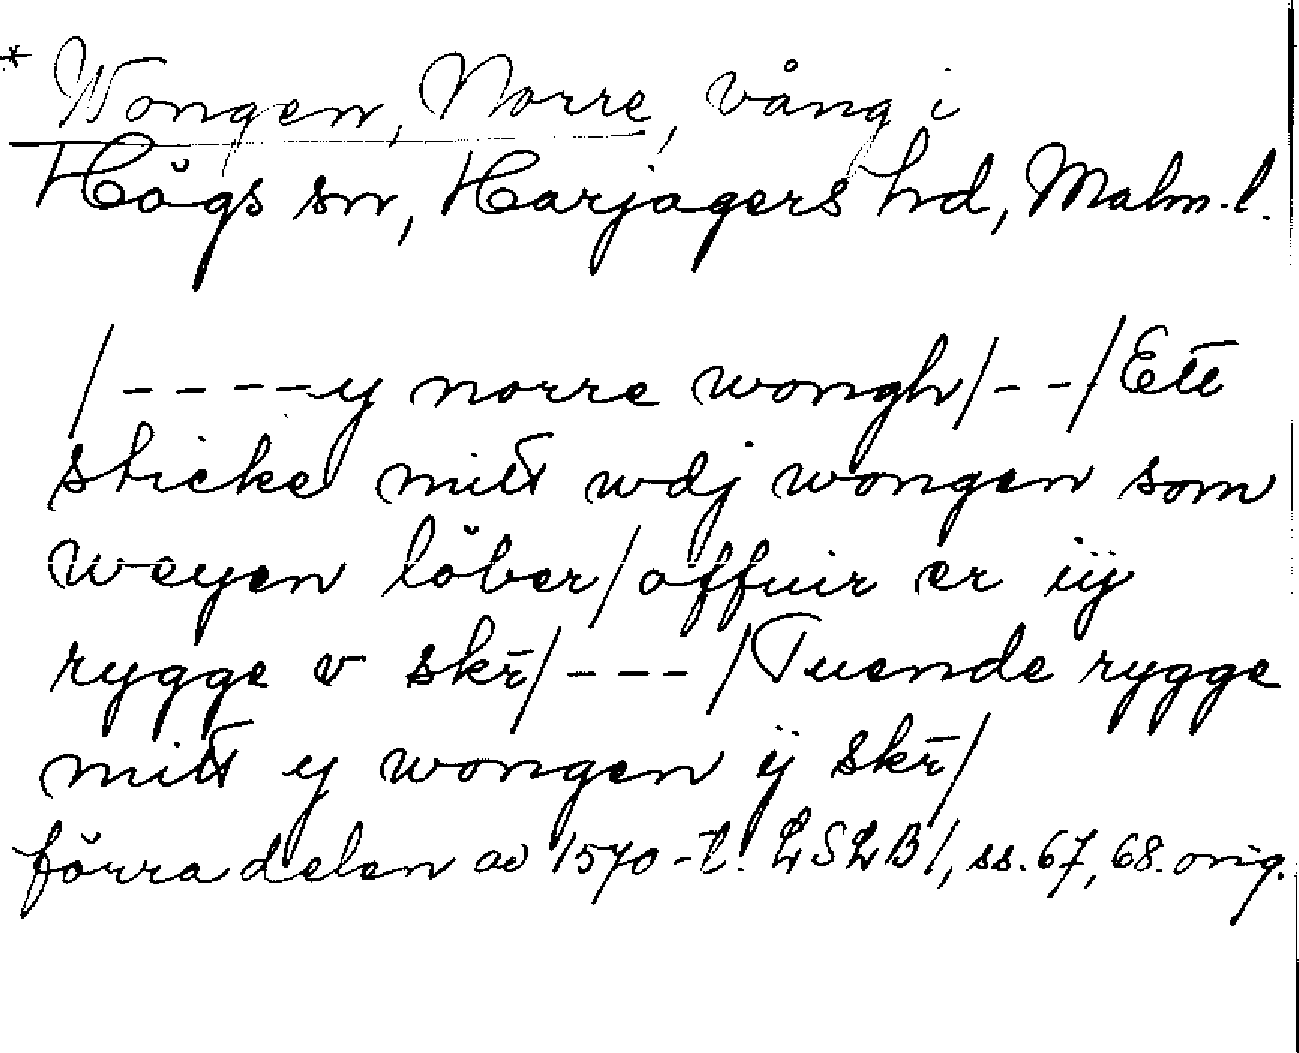 * Wongen, Norre, vång i
Högs sn, Harjagers hd, Malm. l.
/----y norre wongh/--/Ett
sticke mitt wdj wongen som
weyen löber/offuir er iij
rygge v skr̄/---/Tuende rygge
mitt y wongen ij skr̄/
förra delen av 1570-t. LSLB1, ss. 67, 68. orig.